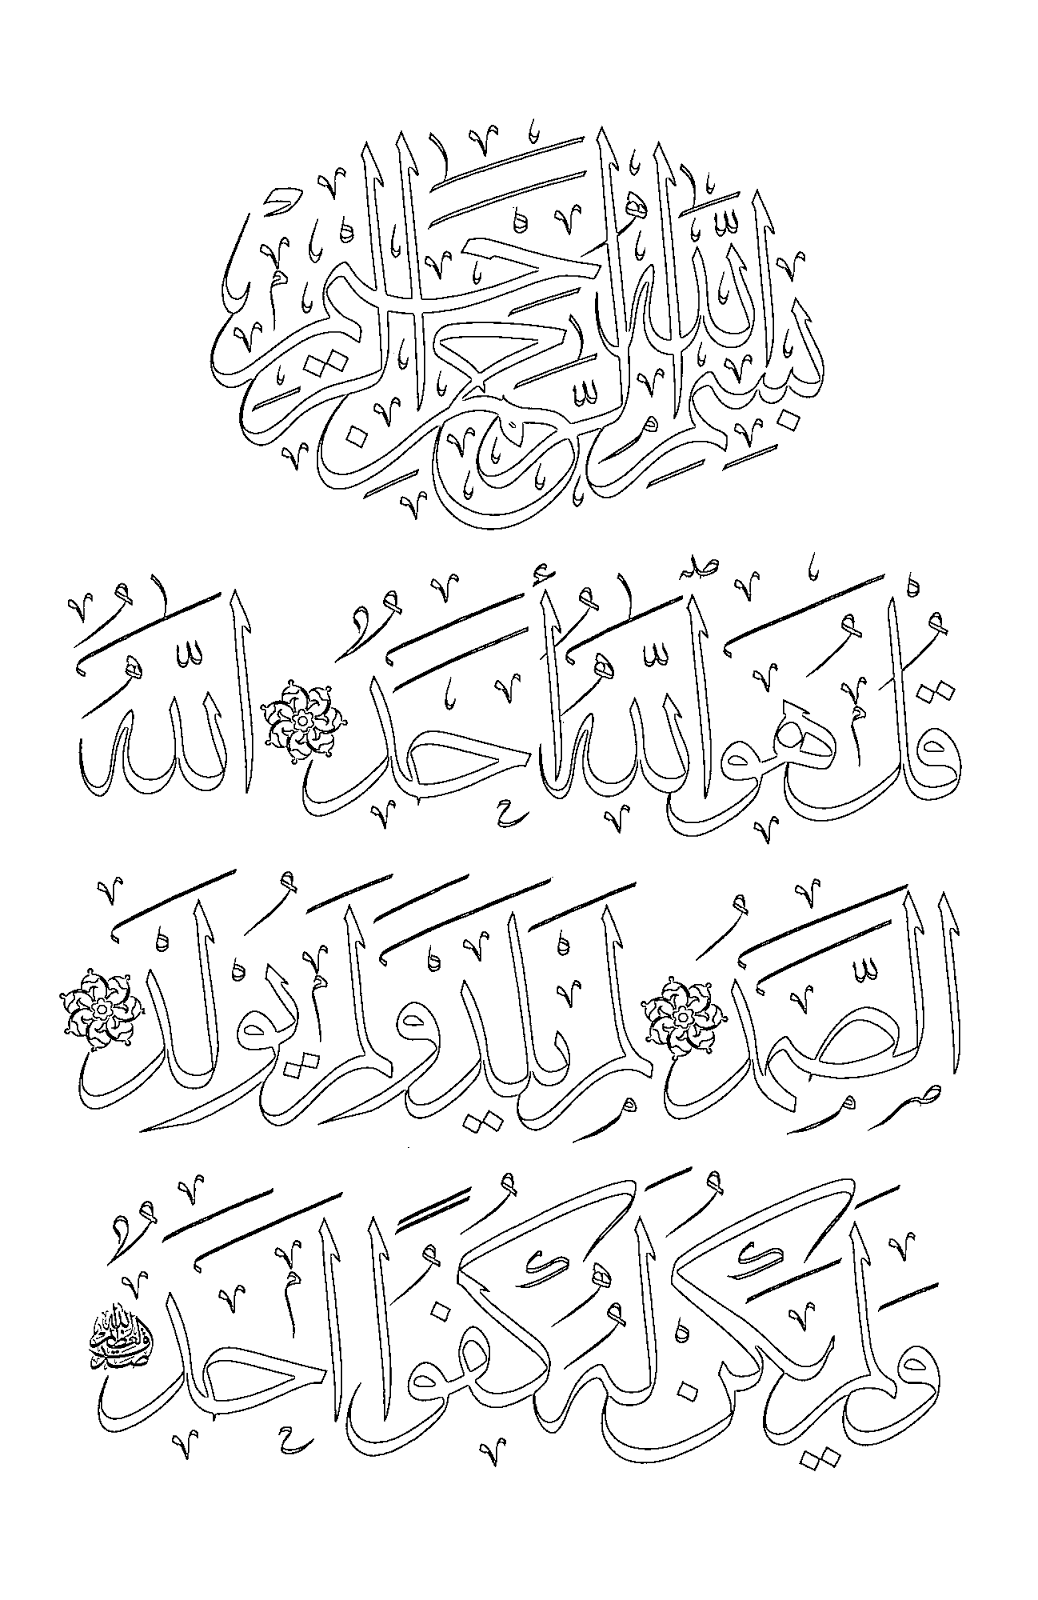 بِسْمِ اللَّهِ الرَّحْمَٰنِ الرَّحِيمِ
قُلْ هُوَ اللَّهُ أَحَدٌ اللَّهُ
الصَّمَدُ لَمْ يَلِدْ وَلَمْ يُولَدْ
وَلَمْ يَكُنْ لَهُ كُفُوًا أَحَدٌ
صدق الله العظيم